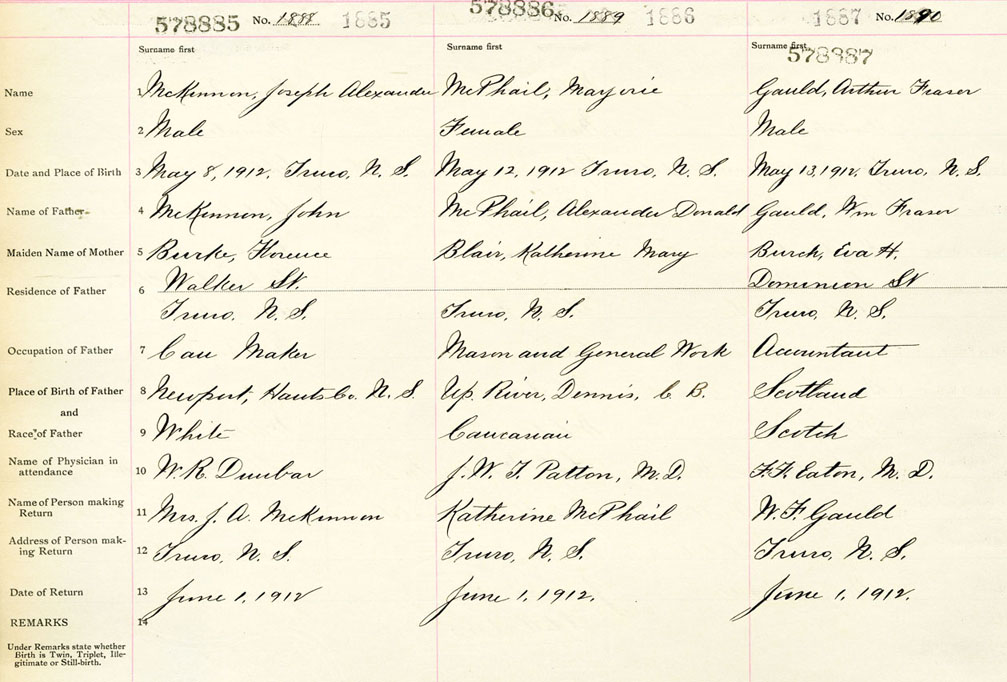 578885 No. 1888 1885 578886 No. 1889 1886 1887 No. 1890
Surname first Surname first Surname first 578887
Name 1 McKinnon, Joseph Alexander McPhail, Marjorie Gauld, Arthur Fraser
Sex 2 Male Female Male
Date and Place of Birth 3 May 8, 1912, Truro, N. S. May 12, 1912 Truro, N. S. May 13, 1912, Truro, N. S.
Name of Father 4 McKinnon, John McPhail, Alexander Donald Gauld, Wm Fraser
Maiden Name of Mother 5 Burke, Florence Blair, Katherine Mary Burch, Eva H.
Walker St. Dominion St
Residence of Father 6
Truro, N. S. Truro, N. S. Truro, N. S.
Occupation of Father 7 Can Maker Mason and General Work Accountant
Place of Birth of Father 8 Newport, Hants Co. N. S. Up. River, Dennis, C. B. Scotland
and
Race of Father 9 White Caucasian Scotch
Name of Physician in
attendance 10 W. R. Dunbar J. W. T. Patton, M. D. F. F. Eaton, M. D.
Name of Person making
Return 11 Mrs. J. A. McKinnon Katherine McPhail W. F. Gauld
Address of Person mak-
ing Return 12 Truro, N. S. Truro, N. S. Truro, N. S.
Date of Return 13 June 1, 1912 June 1, 1912. June 1, 1912.
REMARKS 14
Under Remarks state whether
Birth is Twin, Triplet, Ille-
gitimate or Still-birth.